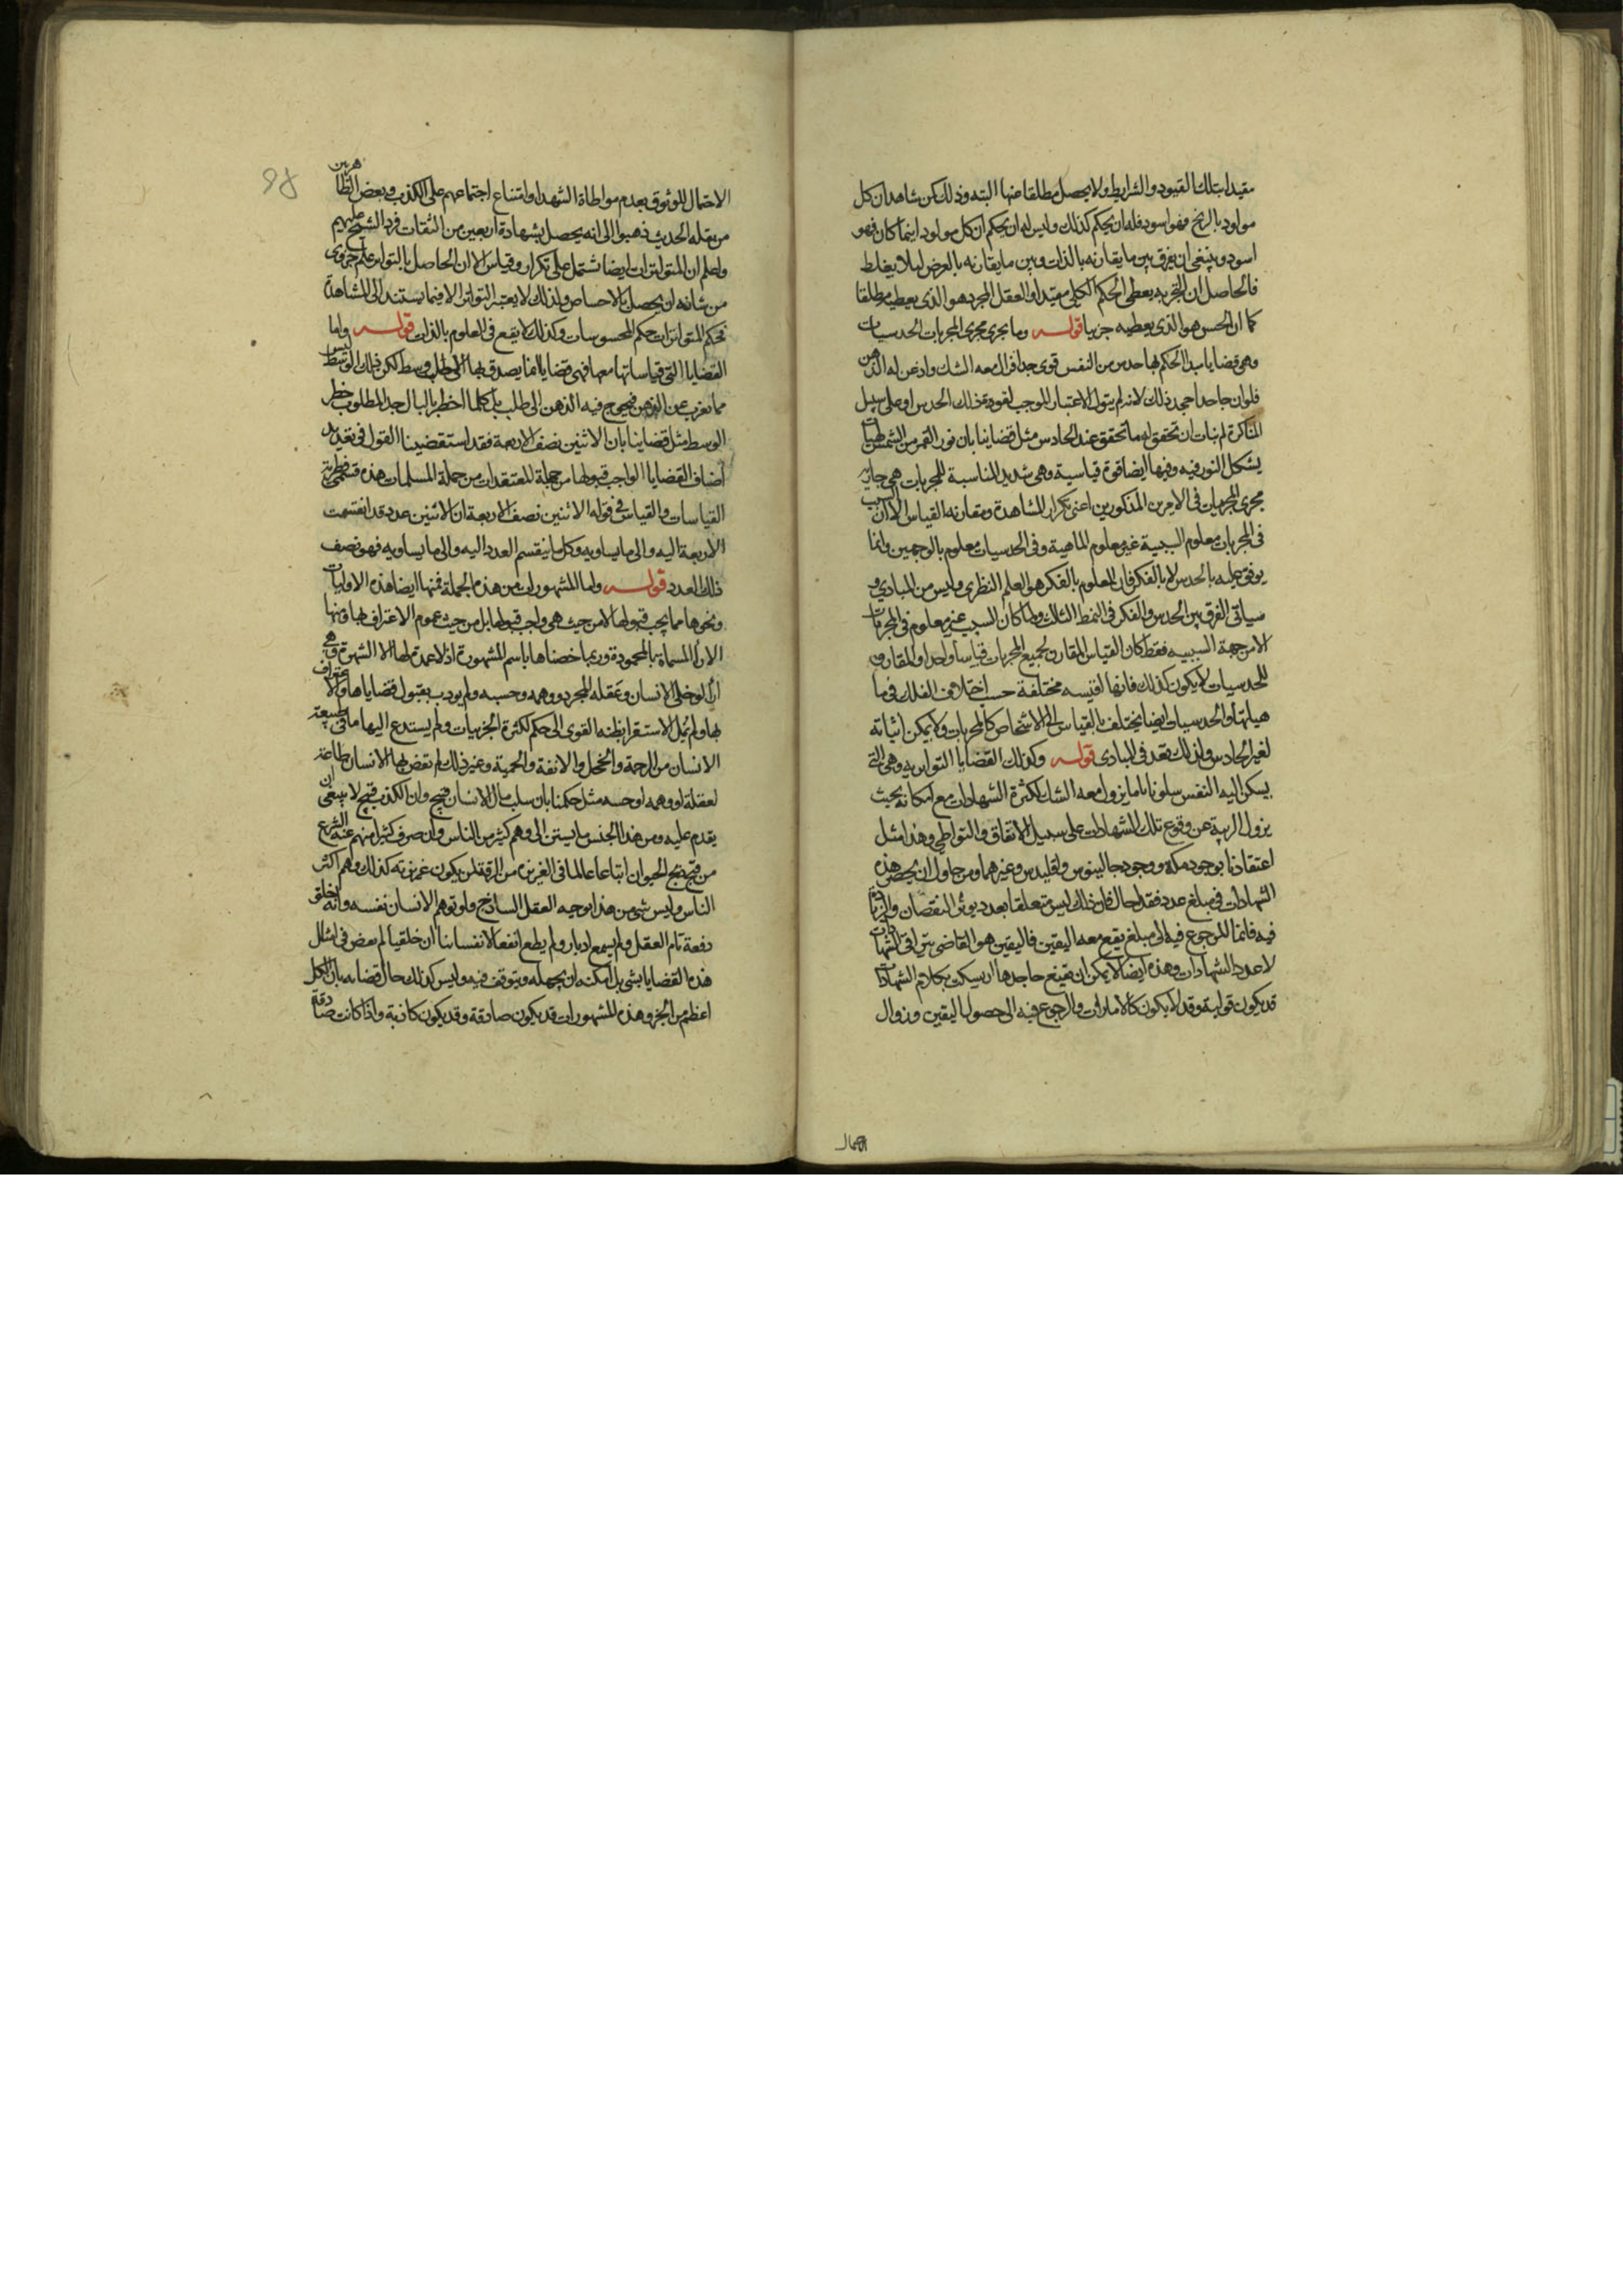 مقيدا بتلك القيود والشرايط ولا يحصل مطلقا عنها البته وذلك كمن شاهد ان كل
مولود بالزنج فهو اسود فله ان يحكم كذلك وليس له ان يحكم ان كل مولود اينما كان فهو
اسود وينبغي ان يفرق بين ما يقارنه بالذات وبين ما يقارنه بالعرض ليلا يغلط
فالحاصل ان التجربه يعطى الحكم الكلى مقيدا والعقل المجرد هو الذى يعطيه مطلقا
كما ان الحس هو الذى يعطيه جزييا قولـــه وما يجرى مجرى المجربات الحدسيات
وهى قضايا مبدا الحكم بها حدس من النفس قوى جدا فزال معه الشك واذعن له الذهن
فلو ان جاحدا جحد ذلك لانه لم يتول الاعتبار الموجب لقوة ذلك الحدس او على سبيل
المناكرة لم يتات ان تحقق له ما تحقق عند الحادس مثل قضاينا بان نور القمر من الشمس لهيات
يشكل النور فيه وفيها ايضا قوة قياسية وهى شديد المناسبة للمجربات هى جاريه
مجرى المجربات فى الامرين المذكورين اعنى تكرار المشاهدة ومقارنه القياس الا ان السبب
فى المجربات معلوم السببية غير معلوم الماهية وفى الحدسيات معلوم بالوجهين وانما
يوقف عليه بالحدس لا بالفكر فان المعلوم بالفكر هو العلم النظرى وليس من المبادى و
سياتى الفرق بين الحدس والفكر فى النمط الثالث ولما كان السبب غير معلوم فى المجربات
الا من جهة السببيه فقط كان القياس المقارن لجميع المجربات قياسا واحدا والمقارن
للحدسيات لا يكون كذلك فانها اقيسه مختلفة حسب اختلاف العلل فى ما
هياتها والحدسيات ايضا يختلف بالقياس الى الاشخاص كالمجربات ولا يمكن اثباته
لغير الحادس ولذلك تعد فى المبادى قولـــه وكذلك القضايا التواتريه وهى التى
يسكن اليه النفس سكونا تاما يزول معه الشك لكثرة الشهادات مع امكانه بحيث
يزول الريبة عن وقوع تلك الشهادات على سبيل الاتفاق والتواطى وهذا مثل
اعتقادنا بوجود مكه ووجود جالينوس واقليدس وغيرهما ومن حاول ان يحصر هذه
الشهادات فى مبلغ عدد فقد احال فان ذلك ليس متعلقا بعدد يوثر النقصان والزيادة
فيه فانما المرجوع فيه الى مبلغ يقع معه اليقين فاليقين هو القاضى بتوافى الشهادات
لا عدد الشهادات وهذه ايضا لا يمكن ان يقنع جاحدها او يسكت بكلام الشهادات
قد يكون قولية وقد لا يكون كالامارات والرجوع فيه الى حصول اليقين وزوال
احتمال
98
الاحتمال للوثوق بعدم مواطاة الشهدا وامتناع اجتماعهم على الكذب وبعض الظاهريين
من نقله الحديث ذهبوا الى انه يحصل بشهادة اربعين من الثقات فرد الشيخ عليهم
واعلم ان المتواترات ايضا تشتمل على تكرار وقياس الا ان الحاصل بالتواتر علم جزوى
من شانه ان يحصل بالاحساس ولذلك لا يعتبر التواتر الا فيما يستند الى المشاهدة
فحكم المتواترات حكم المحسوسات وكذلك لا يقع فى العلوم بالذات قولـــه واما
القضايا التى قياساتها معها فهى قضايا انما يصدق بها لاجل وسط لكن ذلك الوسط ليس
مما يعزب عن الذهن فيحوج فيه الذهن الى طلب بل كلما اخطر بالبال حد المطلوب خطر
الوسط مثل قضاينا بان الاثنين نصف الاربعة فقد استقضينا القول فى تعديد
اصناف القضايا الواجب قبولها من جملة المعتقدات من جملة المسلمات هذه قسمى فطرية
القياسات والقياس فى قوله الاثنين نصف الاربعة ان الاثنين عدد قد انقسمت
الاربعة اليه والى ما يساويه وكل ما ينقسم العدد اليه والى ما يساويه فهو نصف
ذلك العدد قولـــه واما المشهورات من هذه الجملة فمنها ايضا هذه الاوليات
ونحوها مما يجب قبولها لا من حيث هى واجب قبولها بل من حيث عموم الاعتراف بها ومنها
الارا المسماة بالمحمودة وربما خصناها باسم المشهورة اذ لا عمدة لها الا الشهرة وهى
ارا لو خلى الانسان وعقله المجرد ووهمه وحسه ولم يودب بقبول قضاياها والاعتراف
بها ولم يمل الاستقرا بظنه القوى الى حكم لكثرة الجزييات ولم يستدع اليها ما فى طبيعة
الانسان من الرحمة والخجل والانفة والحمية وغير ذلك لم تقض بها الانسان طاعة
لعقله او وهمه او حسه مثل حكمنا بان سلب مال الانسان قبيح وان الكذب قبيح لا ينبغى ان
يقدم عليه ومن هذا الجنس ما يسبق الى وهم كثير من الناس وان صرف كثيرا منهم عنه الشرع
من قبح ذبح الحيوان اتباعا لما فى الغريزة من الرقة لمن يكون غريزته كذلك وهم اكثر
الناس وليس شى من هذا يوجبه العقل الساذج ولو توهم الانسان نفسه وانه خلق
دفعة تام العقل ولم يسمع ادبا ولم يطع انفعالا نفسانيا او خلقيا لم يقض فى امثال
هذه القضايا بشى بل امكنه ان يجهله ويتوقف فيه وليس كذلك حال قضايه بان الكل
اعظم من الجزو وهذه المشهورات قد يكون صادقة وقد يكون كاذبة واذا كانت صادقة